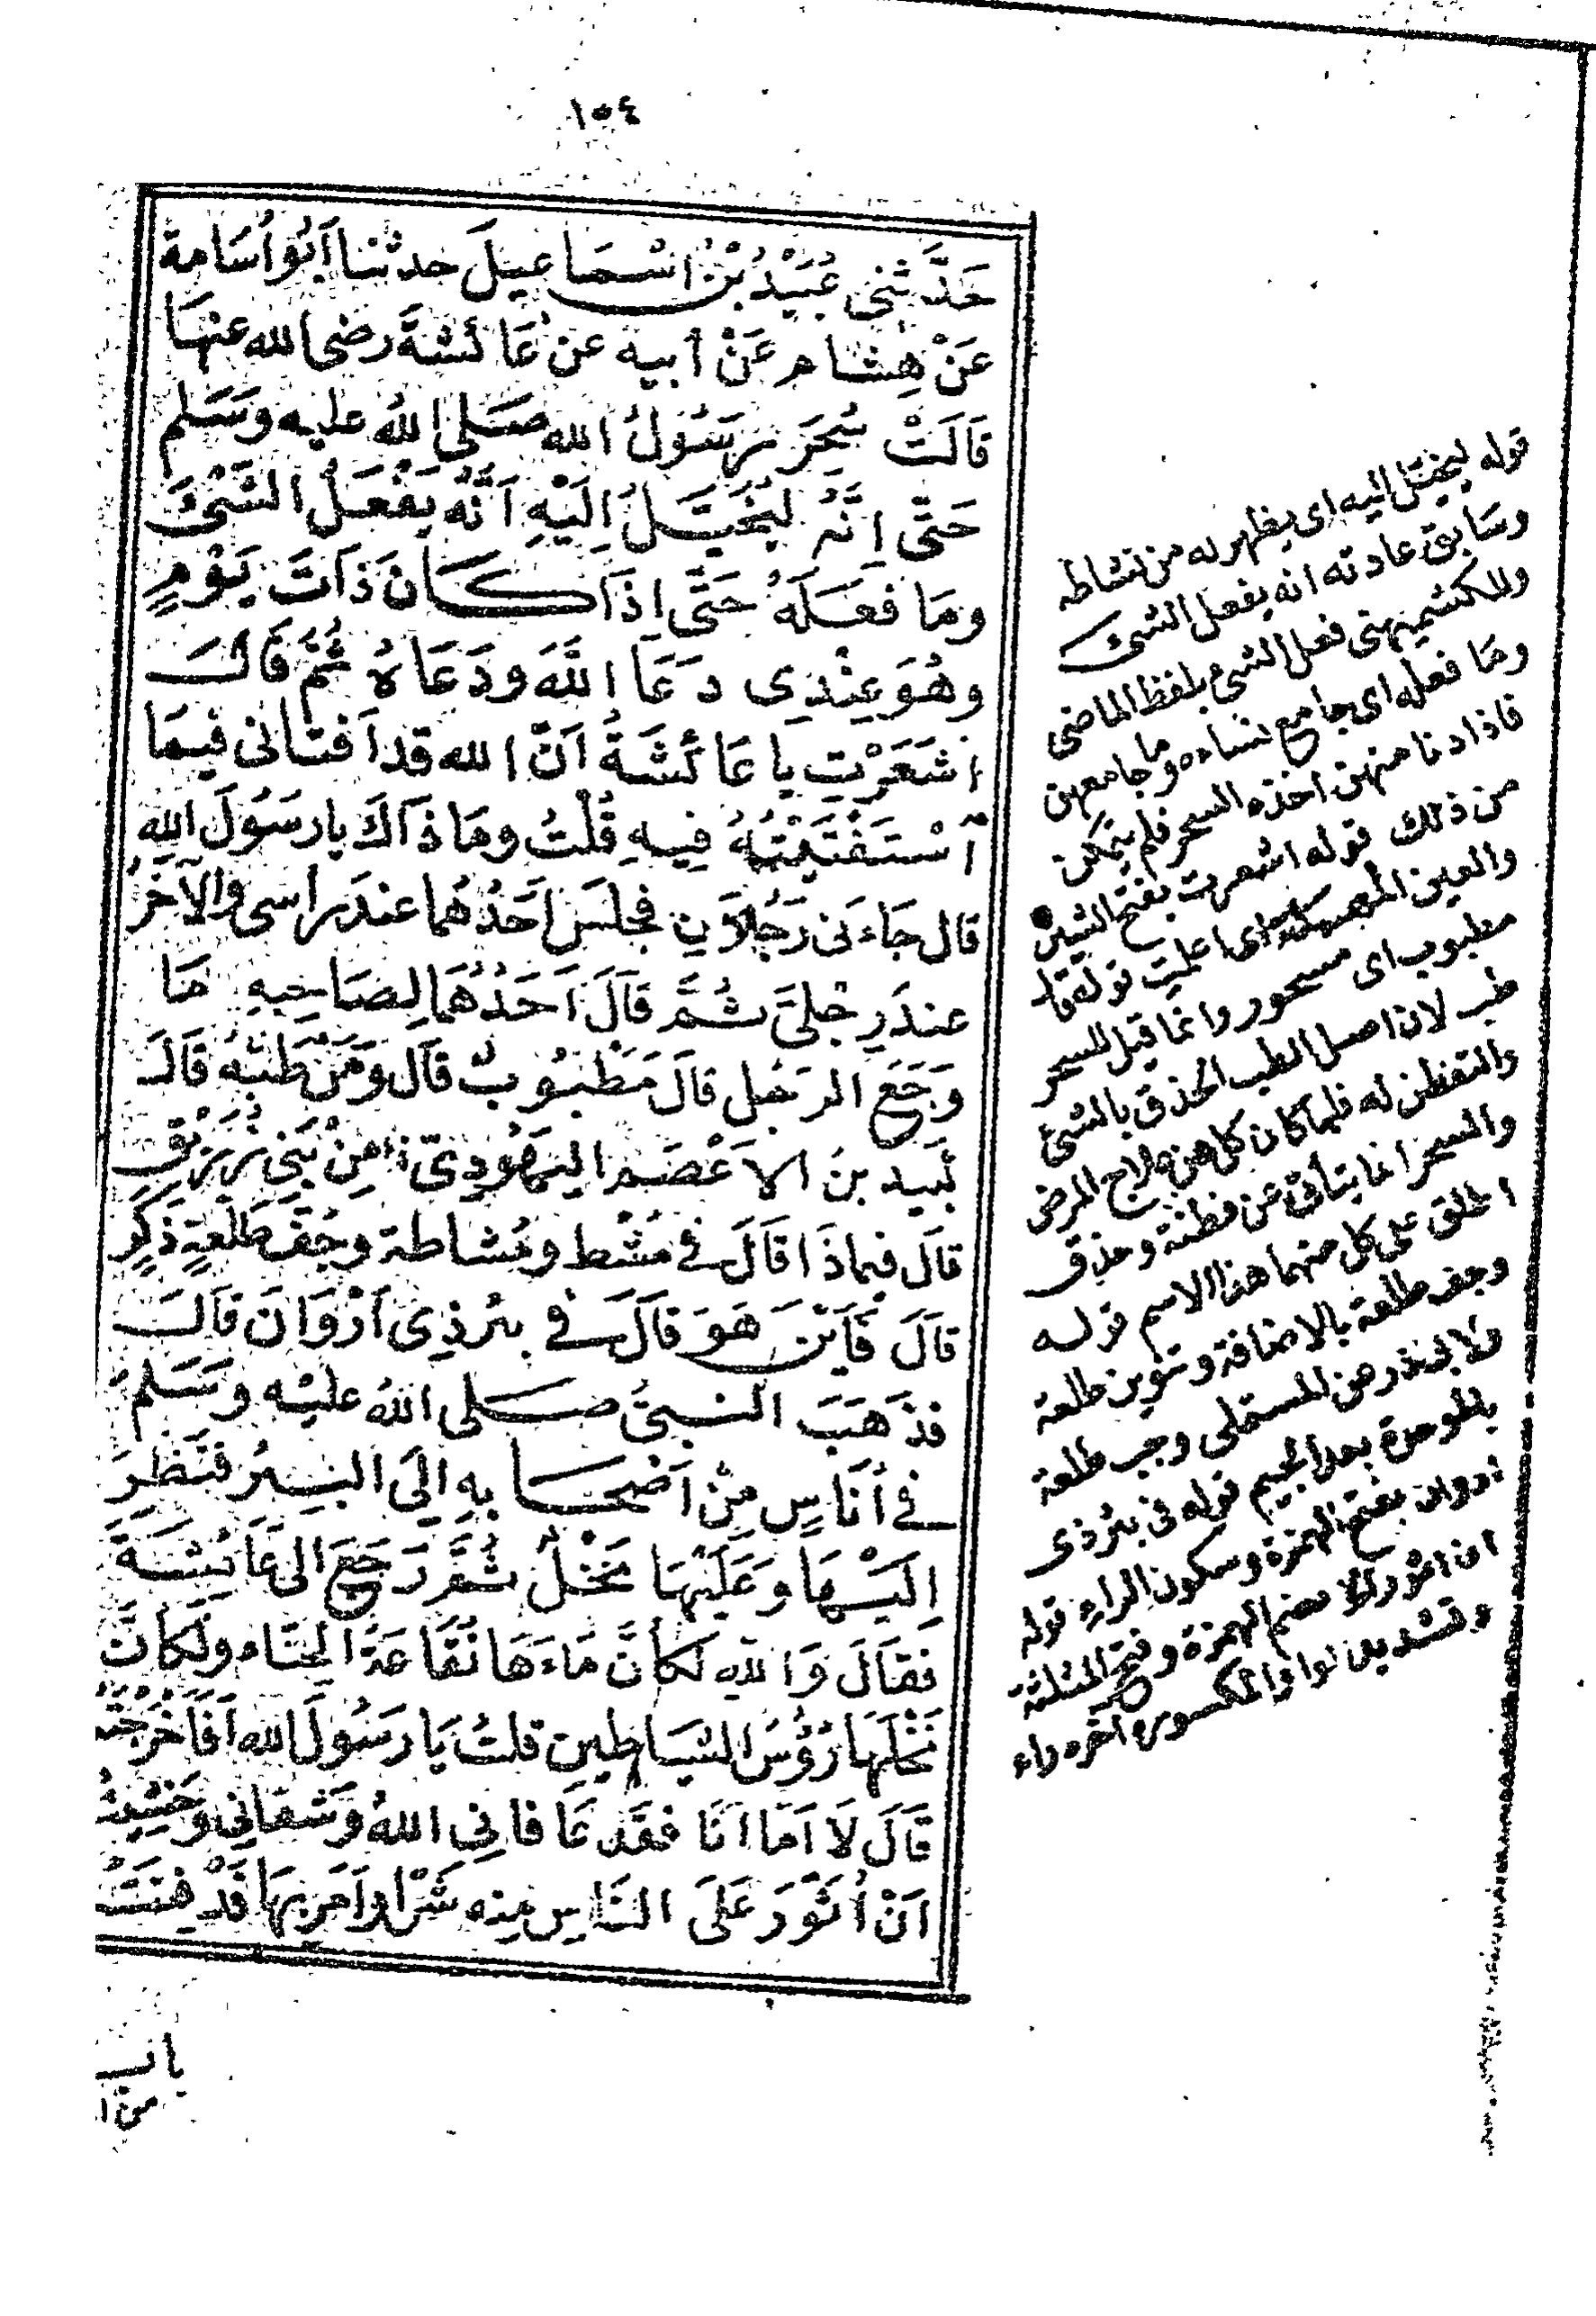 ١٥٤
حَدَّثنى عُبَيْدُ بْنُ اسْمَاعيلَ حدثنا اَبُو اُسَامة
عَنْ هِشام عَنْ أبيه عن عَائشةَ رضى الله عنهَا
قَالَتْ سُحِرَ رَسُولُ الله صَلى اللهُ عليه وسَلم
حَتَّى اِنَّهُ ليُخَيَّلُ اِلَيْهِ اَنَّهُ يَفْعَلُ الشَّىْءَ
ومَا فعَلَهُ حَتَّى اِذَا كَانَ ذَاتَ يَوْمٍ
وهُوَ عِنْدِى دَعَا اللَّهَ ودَعَاهُ ثُمَّ قَالَ
اَشَعَرْتِ يا عَائشَةُ اَنَّ الله قد اَفتانى فيمَا
اسْتَفْتَيْتُهُ فِيهِ قُلْتُ ومَا ذَاكَ يا رسَوُلَ اللهِ
قال جَاءَنى رَجُلاَنِ فجلَسَ اَحَدُهُما عندَ رأسى والآخَرُ
عندَ رِجْلىَّ ثُمَّ قَالَ اَحَدُهُمَا لِصَاحِبِهِ مَا
وَجَعُ الرَّجُل قالَ مَطْبُوبٌ قال وَمَنْ طَبَّهُ قَالَ
لَبيد بنُ الاَعْصَم اليَهُودِىّ مِنْ بَنِى زُرَيْقٍ
قالَ فيماذَا قَالَ فى مُشْط ومُشاطة وجُفِّ طَلْعَةٍ ذَكَرٍ
قالَ فَاَيْنَ هُوَ قَالَ فى بئر ذِى اَرْوَانَ قَالَ
فذَهَبَ النبىُّ صَلى اللهُ عليْه وسَلم
فى أُنَاسٍ مِنْ اَصْحَابهِ اِلَى البِئر فنَظَرَ
اِلَيْهَا وعَلَيْهَا نَخْلٌ ثُمَّ رَجَعَ الى عَائِشَةَ
فقَالَ وَاللهِ لكأنَّ مَاءَهَا نُقَاعَةُ الحِنَّاء ولكأنَّ
نَخْلَهَا رُؤُسُ الشيَاطين قلتُ يَا رسَوُلَ الله اَفَاَخْرَجْتَهُ
قَالَ لاَ اَمَّا اَنَا فقَد عَافانِى اللهُ وشفانِى وخَشِيتُ
اَنْ اُثَوِّرَ عَلَى النَّاسِ مِنه شَرًّا واَمَرَ بهَا فَدُفِنَتْ
قوله ليخيل اليه اى يظهر له من نشاطه
وسابق عادته انه يفعل الشئ
وللكشميهنى فعل الشئ بلفظ الماضى
وما فعله اى جامع نساءه وما جامعهن
فاذا دنا منهن اخذه السحر فلم يتمكن
من ذلك قوله اشعرت بفتح الشين
والعين المهملة اى اعلمت قوله قال
مطبوب اى مسحور وانما قيل للسحر
طب لان اصل الطب الحذق بالشئ
والتفطن له فلما كان كل من علاج المرض
والسحر انما يتأتى عن فطنة وحذق
اطلق على كل منهما هذا الاسم قوله
وجف طلعة بالاضافة وتنوين طلعة
ولابى ذر عن المستملى وجب طلعة
بالموحدة بعد الجيم قوله فى بئر ذى
اروان بفتح الهمزة وسكون الراء قوله
ان اثور بضم الهمزة وفتح المثلثة
وتشديد الواو المكسورة اخره راء
باب
من ا